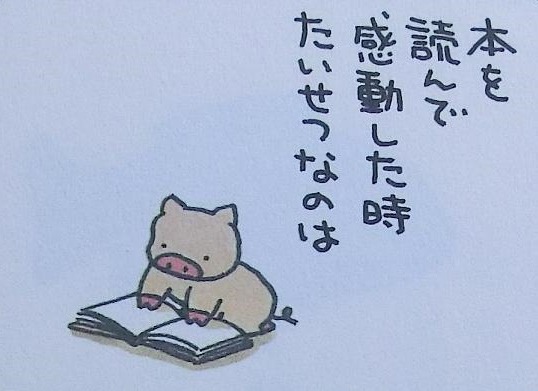 本を
読んで
感動した時
たいせつなのは